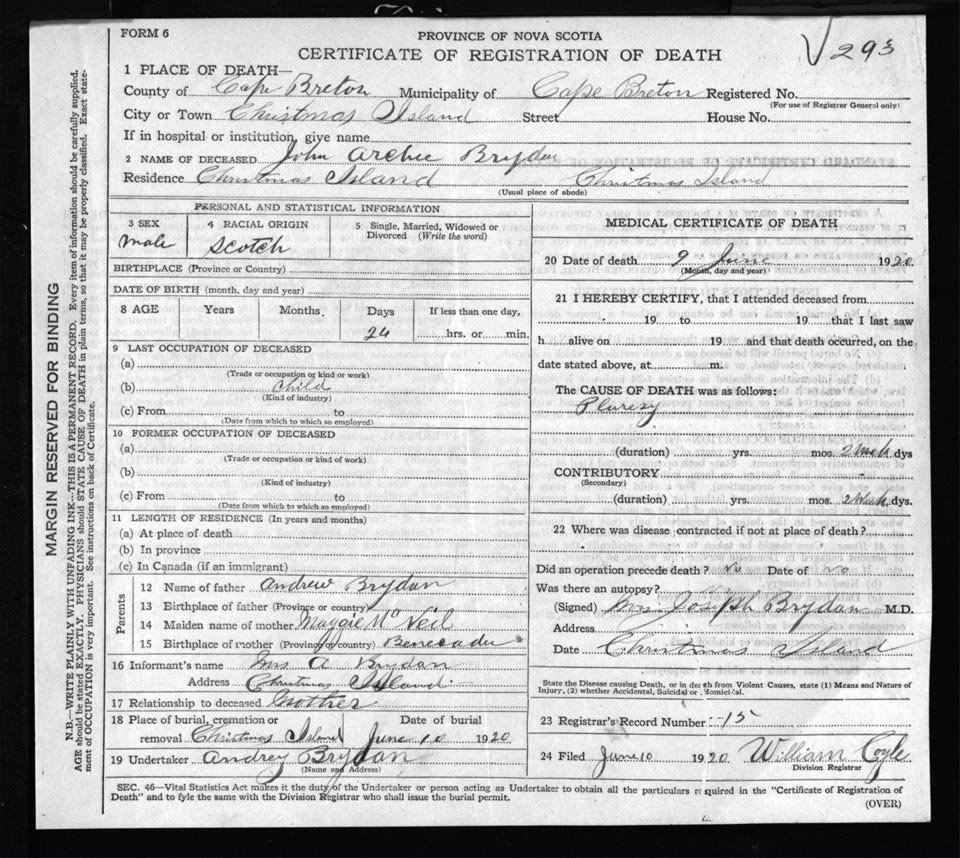 FORM 6
PROVINCE OF NOVA SCOTIA
CERTIFICATE OF REGISTRATION OF DEATH
293
1 PLACE OF DEATH—
County of Cape Breton Municipality of Cape Breton Registered No.
(For use of Registrar General only)
City or Town Christmas Island Street House No.
If in hospital or institution, give name
2 NAME OF DECEASED John Archie Brydan
Residence Christmas Island Christmas Island
(Usual place of abode)
PERSONAL AND STATISTICAL INFORMATION
3 SEX male
4 RACIAL ORIGIN Scotch
5 Single, Married, Widowed or Divorced (Write the word)
BIRTHPLACE (Province or Country)
DATE OF BIRTH (month, day and year)
8 AGE Years Months Days If less than one day,
24 hrs. or min.
9 LAST OCCUPATION OF DECEASED
(a)
(Trade or occupation or kind or work)
(b) child
(Kind of industry)
(c) From to
(Date from which to which so employed)
10 FORMER OCCUPATION OF DECEASED
(a)
(Trade or occupation or kind of work)
(b)
(Kind of industry)
(c) From to
(Date from which to which so employed)
11 LENGTH OF RESIDENCE (In years and months)
(a) At place of death
(b) In province
(c) In Canada (if an immigrant)
Parents
12 Name of father Andrew Brydan
13 Birthplace of father (Province or country)
14 Maiden name of mother Maggie McNeil
15 Birthplace of mother (Province or country) Benecadie
16 Informant's name Mrs A Brydan
Address Christmas Island
17 Relationship to deceased Mother
18 Place of burial, cremation or Date of burial
removal Christmas Island June 10 1920
19 Undertaker Andrey Brydan
(Name and Address)
MEDICAL CERTIFICATE OF DEATH
20 Date of death 9 June 1920
(Month, day and year)
21 I HEREBY CERTIFY, that I attended deceased from
19 to 19 that I last saw
h alive on 19 and that death occurred, on the
date stated above, at m.
The CAUSE OF DEATH was as follows:
Pluresy
(duration) yrs. mos. 2 week dys
CONTRIBUTORY
(Secondary)
(duration) yrs. mos. 2 Week dys.
22 Where was disease contracted if not at place of death?
Did an operation precede death? No Date of no
Was there an autopsy?
(Signed) Mrs Joseph Brydan M.D.
Address
Date Christmas Island
State the Disease causing Death, or in death from Violent Causes, state (1) Means and Nature of
Injury, (2) whether Accidental, Suicidal or Homicidal.
23 Registrar's Record Number 15
24 Filed June 10 1920 William Coyle
Division Registrar
SEC. 46—Vital Statistics Act makes it the duty of the Undertaker or person acting as Undertaker to obtain all the particulars required in the "Certificate of Registration of
Death" and to fyle the same with the Division Registrar who shall issue the burial permit.
(OVER)
MARGIN RESERVED FOR BINDING
N.B.—WRITE PLAINLY WITH UNFADING INK—THIS IS A PERMANENT RECORD. Every item of information should be carefully supplied.
AGE should be stated EXACTLY. PHYSICIANS should STATE CAUSE OF DEATH in plain terms, so that it may be properly classified. Exact state-
ment of OCCUPATION is very important. See instructions on back of Certificate.